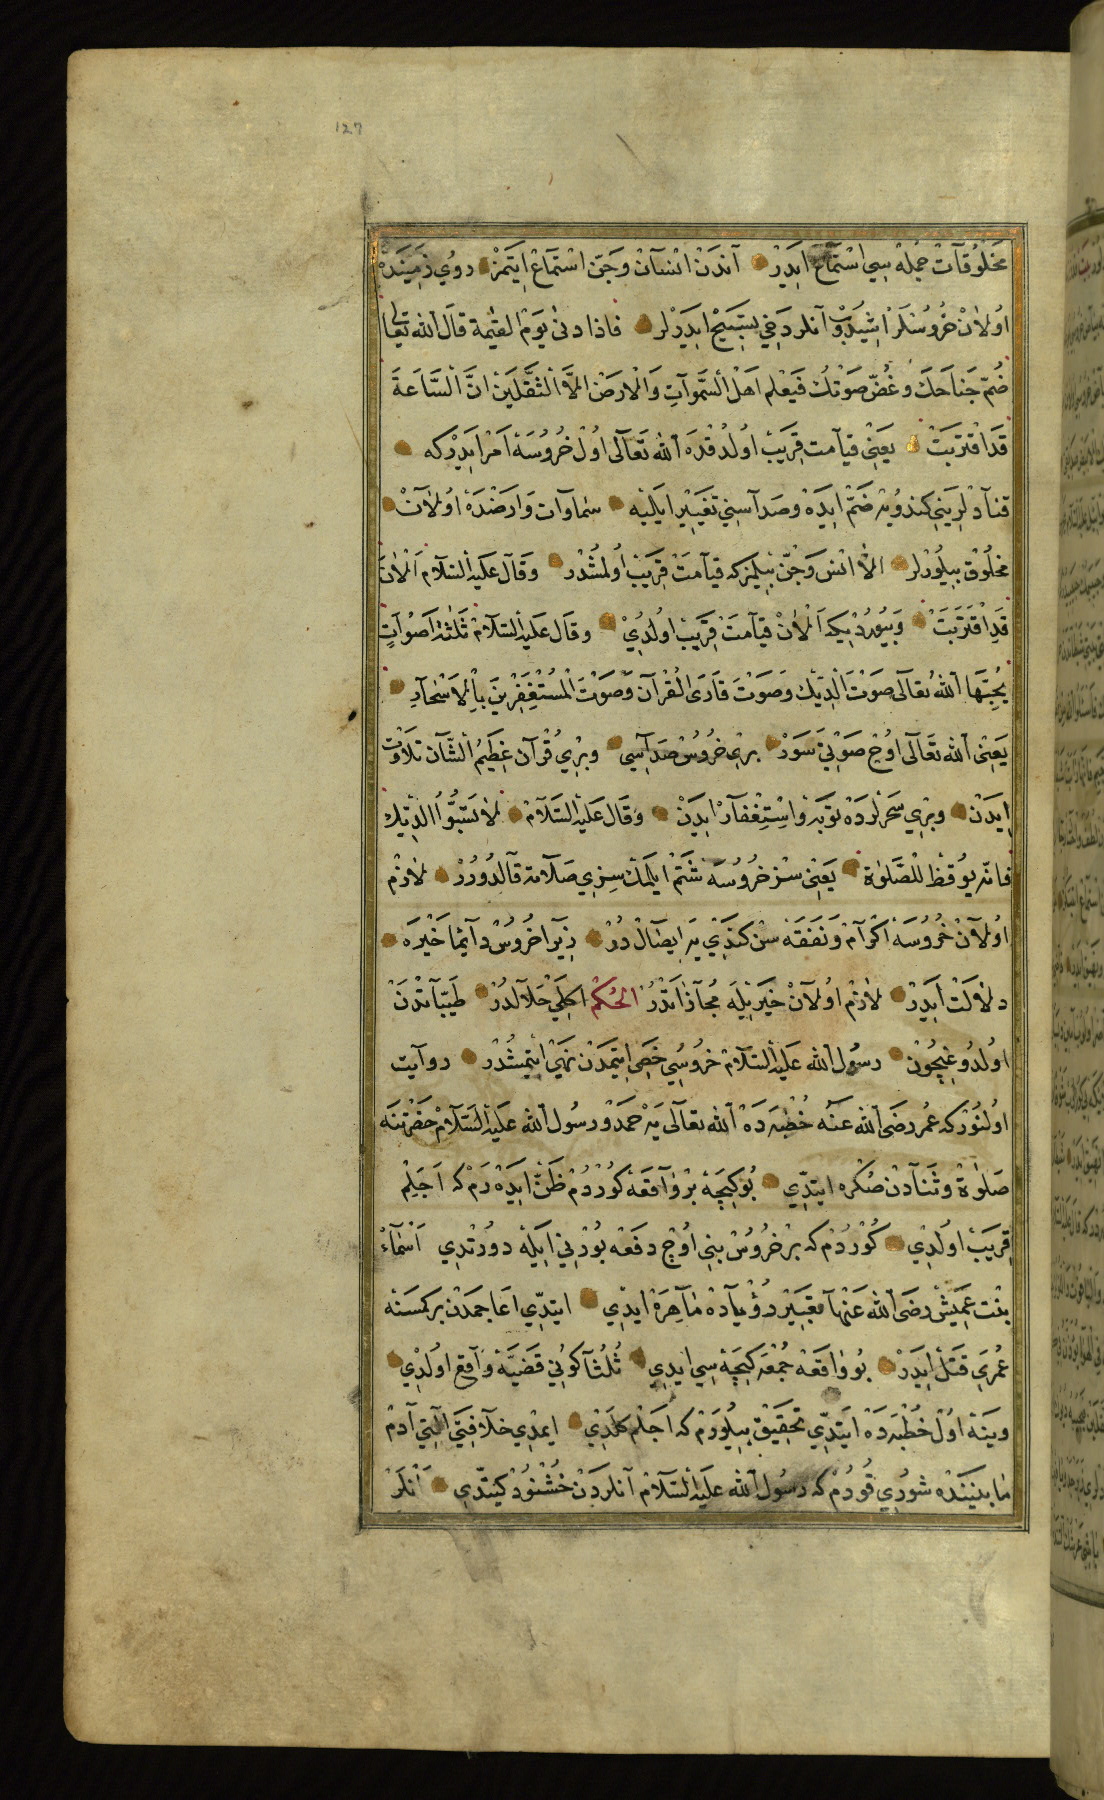 127
مَخْلُوقَآتْ جُمْلَهْ سِي اسْتِمَاعْ ايدَرْ آنْدَنْ انْسَانْ وَجِنّ اسْتِمَاعْ ايتَمَزْ روُي زَمِينَدَهْ
اوُلَانْ خُرُوسْلَرْ اشِيدُوبْ آنلر دَخِي تَسْبِيحْ ايدَرْلَرْ فاذا دنىٰ يَوْم القيٰمة قالَ اللّٰه تَعَالىٰ
ضُمّ جَنَاحَكَ وغُضّ صَوْتَكَ فَيَعْلم اَهْلُ السَّمٰوَاتِ وَالْارَضْ الَّا الثَّقَلَيْنْ انَّ السَّاعَةَ
قَدَ اقْتَرَبَتْ يَعْنِي قيَامت قِرَيبْ اوُلدُقْدَه اللّٰه تَعَالٰى اوُلْ خُرُوسَهْ اَمْر ايدَرْكه
قنادْلَرِينِي كندويه ضَمّ ايدَهْ وصَداسِنِي تغييِر ايلَيَه سَماوات وَارضْدَهْ اوُلَانْ
مخلُوقْ بيلُورْلر الّا انس وَجِنّ بيلمزكه قيامَتْ قِريَبْ اوُلمشْدُر وقَالَ عَلَيه السَّلَامْ اَلْانَ
قَدِ اقْتَرَبَتْ وَبيُورُدِيكِه اَلْانْ قيَامَتْ قِرَيبْ اوُلدِي وقَال عَلَيه السَّلَامْ ثَلٰثَة اَصْوَاتٍ
يُحِبّهَا اللّٰه تعَالٰى صَوْتَ الدِّيكْ وَصَوْتَ قَارِىٰ الْقُرْآن وَصَوْتَ الْمُسْتَغْفِرِينَ بِالْاَسْحَارِ
يَعْنِي اللّٰه تَعَالٰى اوُچْ صَوْتِي سَوَرْ برِي خُرُوسْ صَدَاسِي وبِرِي قُرآن عَظِيمُ الشَّان تلاوت
ايدَنْ وبرِي سَحَرلَردَهْ تَوبَهْ وَاسْتِغْفَارْ ايدَنْ وَقَال عَلَيه السَّلَامْ لَا تَسُبُّوا الدِّيكَ
فانّه يوُقظُ لِلصَّلٰوةِ يَعْنِي سزْ خُرُوسَهْ شَتْم ايلَمَكْ سِزِي صَلَاته قالدُورُرْ لازِمْ
اوُلَانْ خُرُوسَهْ اكْرَامْ وَنَفَقَهْ سِنْ كَنْدِي يَه ايصَالْ دُرْ زِيرا خُرُوسْ دائِما خَيْرَه
دلالَتْ ايدَرْ لازِمْ اوُلَانْ خَيْر بِيلَه مُجازَات دُرْ الحُكم اكلِي حَلالدُرْ طَيّبَاتْدَنْ
اوُلدُوغيچُونْ رسُول اللّٰه عَلَيه السَّلَامْ خرُوسِي خَصِي ايتمَدْن نَهيْ ايتِمشْدُر روايت
اوُلنُورْكه عُمر رضَى اللّٰه عَنْه خُطْبَه دَهْ اللّٰه تعالٰى يَه حَمد وَرسُول اللّٰه عَلَيه السَّلَامْ حَضْرتنَه
صَلٰوة وثَنادَنْ صُكْره ايتدّي بُو كِيجَهْ بِرْ وَاقعَهْ كورْدُمْ ظَنّ ايدَرَمْ كه اَجَلِمْ
قِريَبْ اوُلدِي كُورْدُمْ كه بِرْ خُروُسْ بنِي اوُچ دفعَه بورُنِي ايلَه دورْتدِي اَسْمَاء
بنت عُمَيْسْ رضَى اللّٰه عَنْهَا تعَبيِر رُؤيادَه مَاهِرَهْ ايدِي ايتدّي اَعَاجمدَنْ بركمسَنَه
عُمَرِي قَتل ايدَرْ بُو وَاقعَه جُمْعَه كِيجَه سِي ايدِي ثُلُثا كوُنِي قَضِيَّه وَاقع اوُلدِي
وينَه اوُل خُطْبَه دَهْ ايتدِّي تحقيقْ بيلُورَمْ كه اَجَلم كلدِي ايمدِي خلافتِي التِي آدَمْ
مٰا بينَنْدَه شورِي قُودُمْ كه رسُول اللّٰه عَلَيه السَّلَامْ آنلردَنْ خُشْنُودْ كيتدّي آنلَرْ